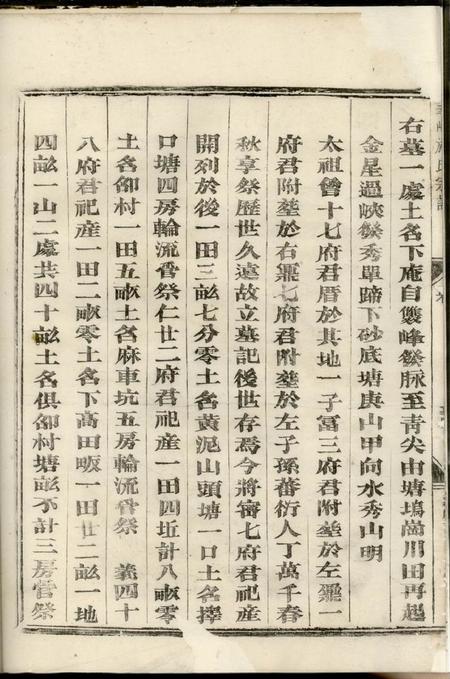 右墓一處土名下庵自雙峰發脉至青尖由塘塢崗川田再起
金星過峽發秀單蹄下砂底塘庚山甲向水秀山明
太祖曾十七府君厝於其地一子富三府君附塟於左壠一
府君附塟於右壠七府君附塟於左子孫蕃衍人丁萬千春
秋享祭歷世久遠故立墓記後世存焉今將審七府君祀產
開列於後一田三畝七分零土名黄泥山頭塘一口土名擇
口塘四房輪流嘗祭仁廿二府君祀產一田四坵計八畝零
土名卻村一田五畝土名麻車坑五房輪流嘗祭 義四十
八府君祀產一田二畝零土名下高田畈一田廿二畝一地
四畝一山二處共四十畝土名俱卻村塘畝不計三房嘗祭